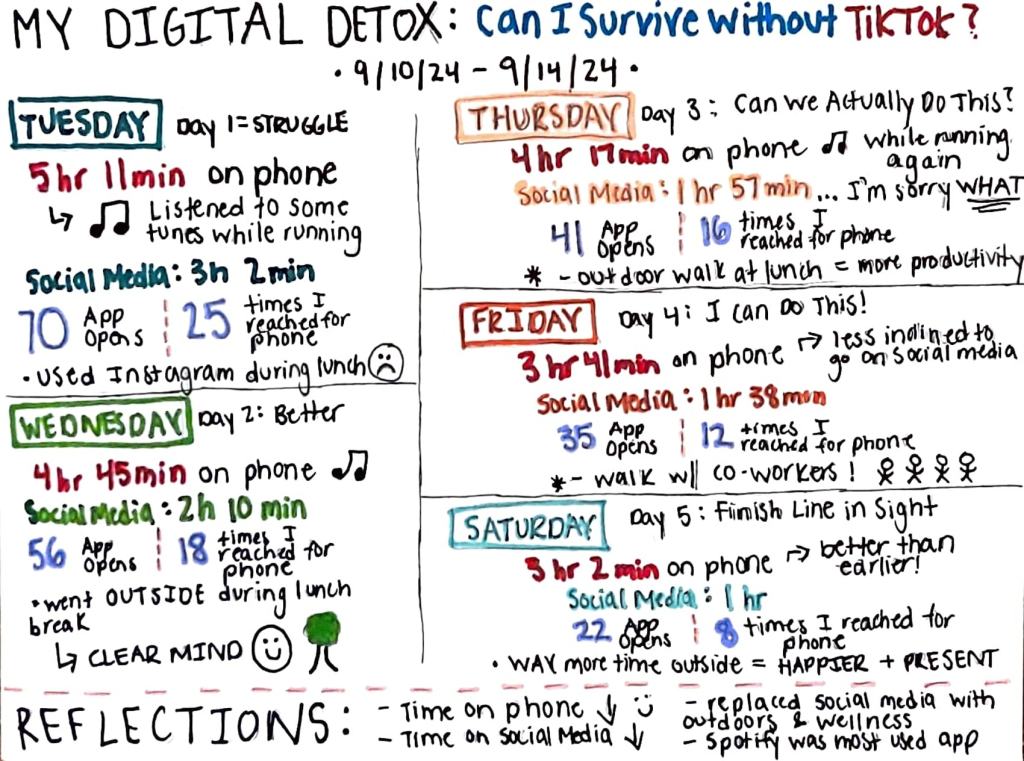 MY DIGITAL DETOX: Can I Survive Without TikTok?
• 9/10/24 – 9/14/24 •
TUESDAY Day 1 = STRUGGLE
5 hr 11min on phone
↳ ♫ Listened to some
tunes while running
Social Media: 3h 2min
70 App Opens | 25 times I reached for phone
• used Instagram during lunch ☹
WEDNESDAY Day 2: Better
4hr 45min on phone ♫
Social Media: 2h 10 min
56 App Opens | 18 times I reached for phone
• went OUTSIDE during lunch
break
↳ CLEAR MIND ☺
THURSDAY Day 3: Can We Actually Do This?
4 hr 17min on phone ♫ while running again
Social Media: 1 hr 57 min... I'm sorry WHAT
41 App Opens | 16 times I reached for phone
* - outdoor walk at lunch = more productivity
FRIDAY Day 4: I can Do This!
3 hr 41min on phone → less inclined to go on social media
Social Media: 1 hr 38min
35 App Opens | 12 times I reached for phone
* - walk w/ co-workers!
SATURDAY Day 5: Finish Line in Sight
3 hr 2 min on phone → better than earlier!
Social Media: 1 hr
22 App Opens | 8 times I reached for phone
• WAY more time outside = HAPPIER + PRESENT
REFLECTIONS:
- Time on phone ↓ ☺
- Time on Social Media ↓
- replaced social media with
outdoors & wellness
- Spotify was most used app